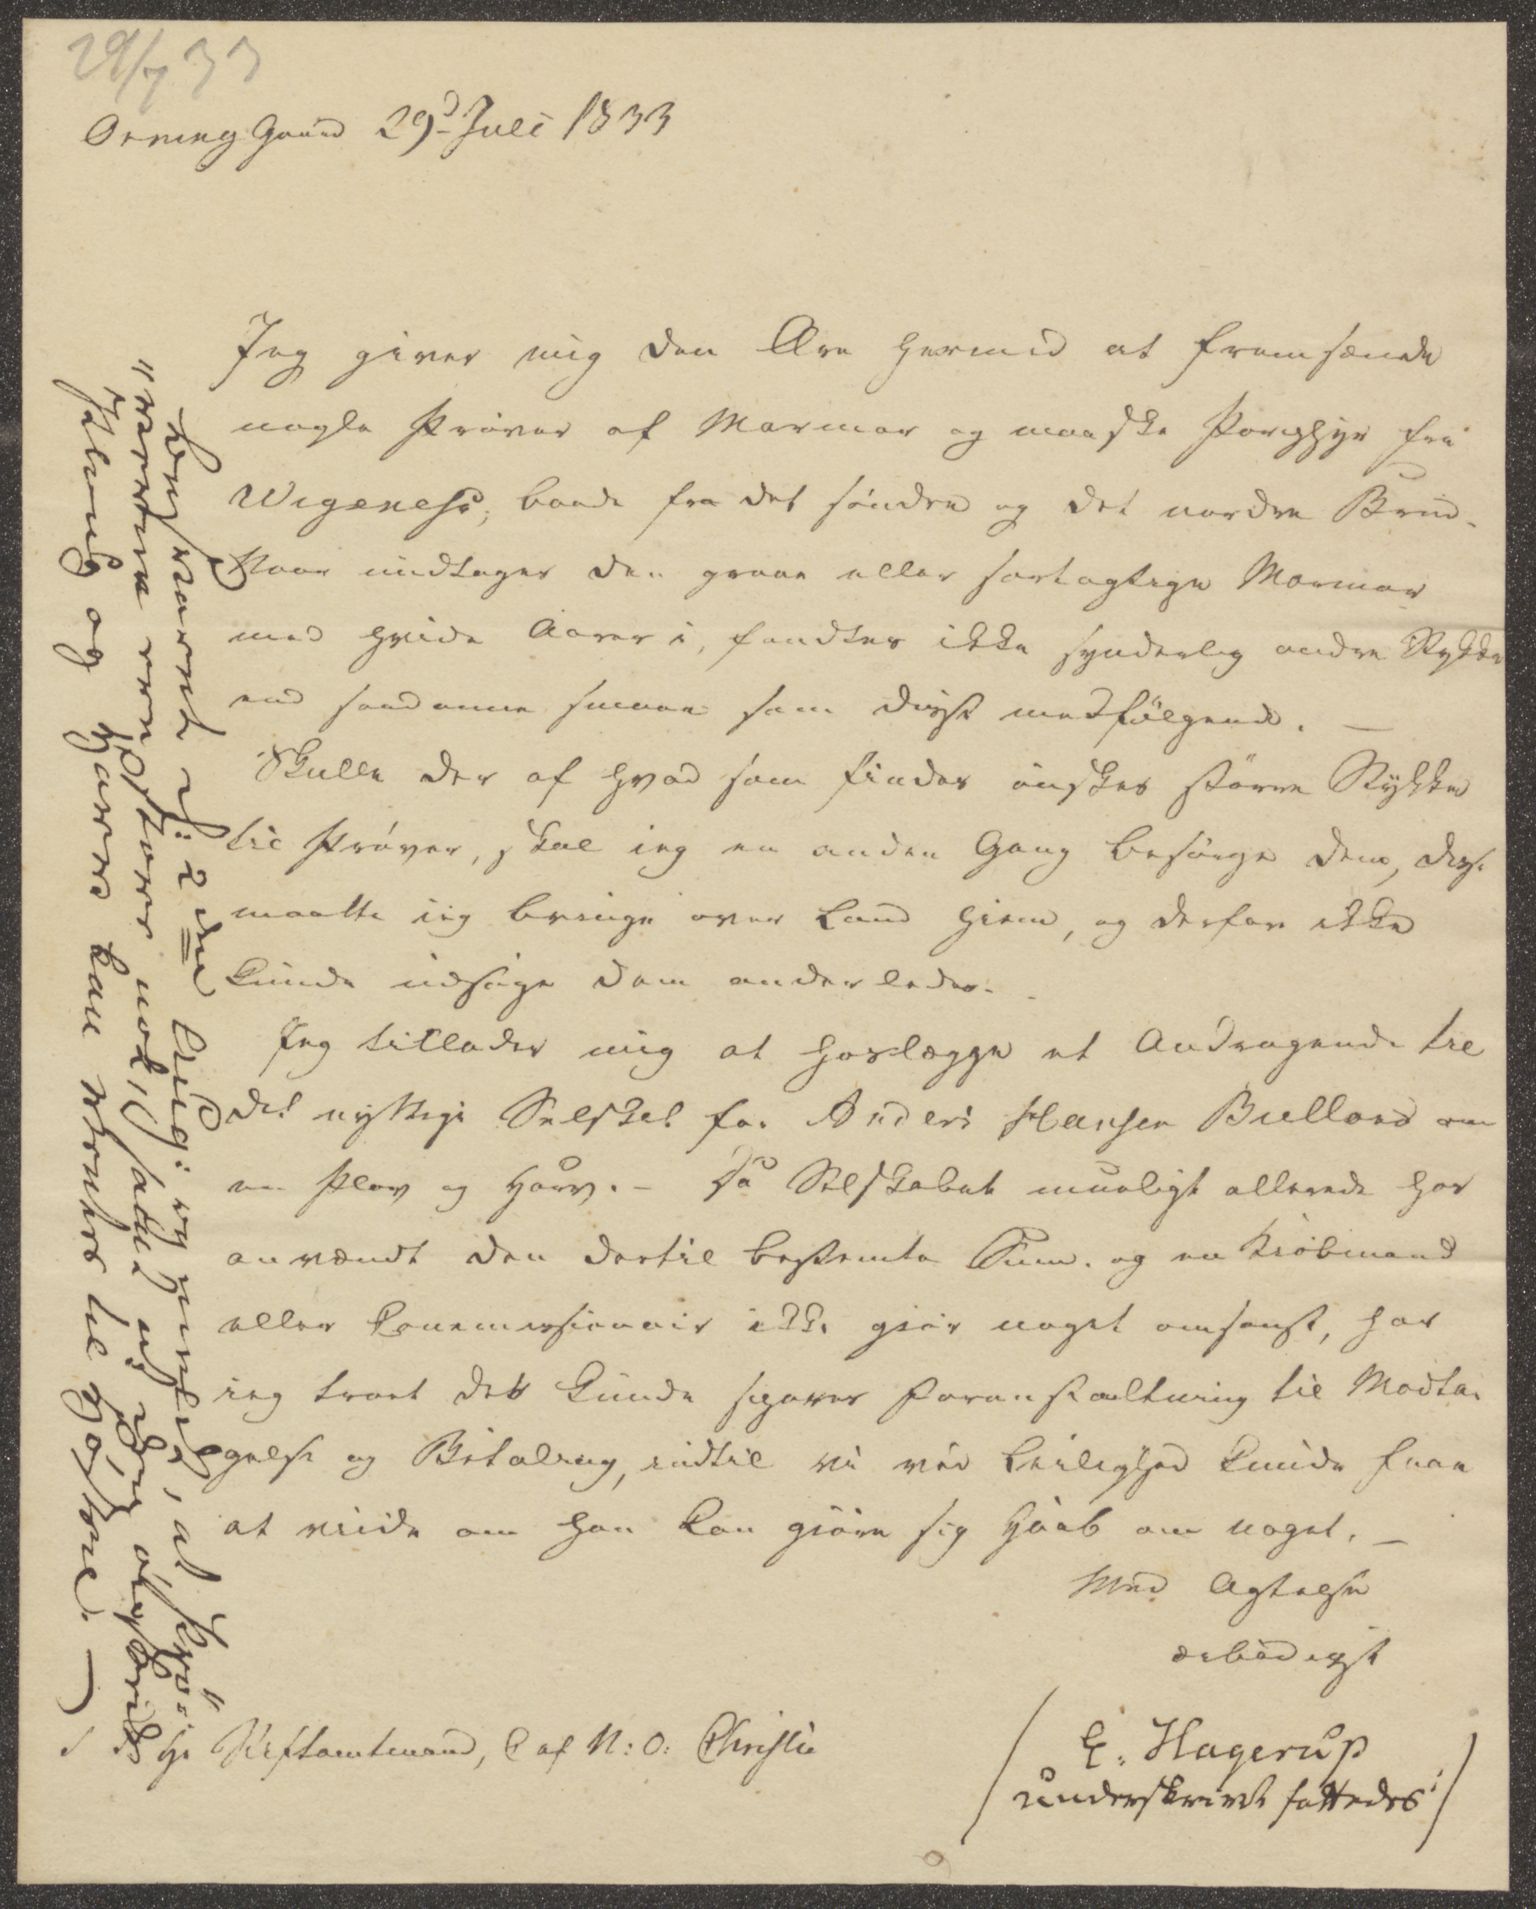 29/7 33
Orning Gaard 29d Juli 1833
Jeg giver mig den Ære hermed at fremsænde
nogle Prøver af Marmor og maaske Porphyr fra
Wigenes; baade fra det søndre og det nordre Brud.
Naar undtages den graae eller sortagtige Marmor
med hvide Aarer i, fandtes ikke synderlig andre Stykker
end saadanne smaae som disse medfølgende. —
Skulle der af hvad som findes ønskes større Stykker
til Prøver, skal jeg en anden Gang besørge dem, disse
maatte jeg bringe over Land hjem, og derfor ikke
kunde udsøge dem anderledes.
Jeg tillader mig at hoslægge et Andragende til
det nyttige Selskab fra Anders Hansen Bielland om
en Plov og Harv. — Da Selskabet mueligt allerede har
anvændt den dertil bestemte Sum, og en Kiøbmand
eller Commissionair ikke giør noget omsonst, har
jeg troet det kunde spares Foranstaltning til Modta-
gelse og Betaling, indtil vi ved Leilighed kunde faae
at viide om han kan giøre sig Haab om noget. —
Med Agtelse
ærbødigst
E. Hagerup
(underskrivt fattedes)
Hr Stiftamtmand, C af N: O: Christie
Jeg 2de og at Prø-
"verne ere store nok,
Slibning og kan til